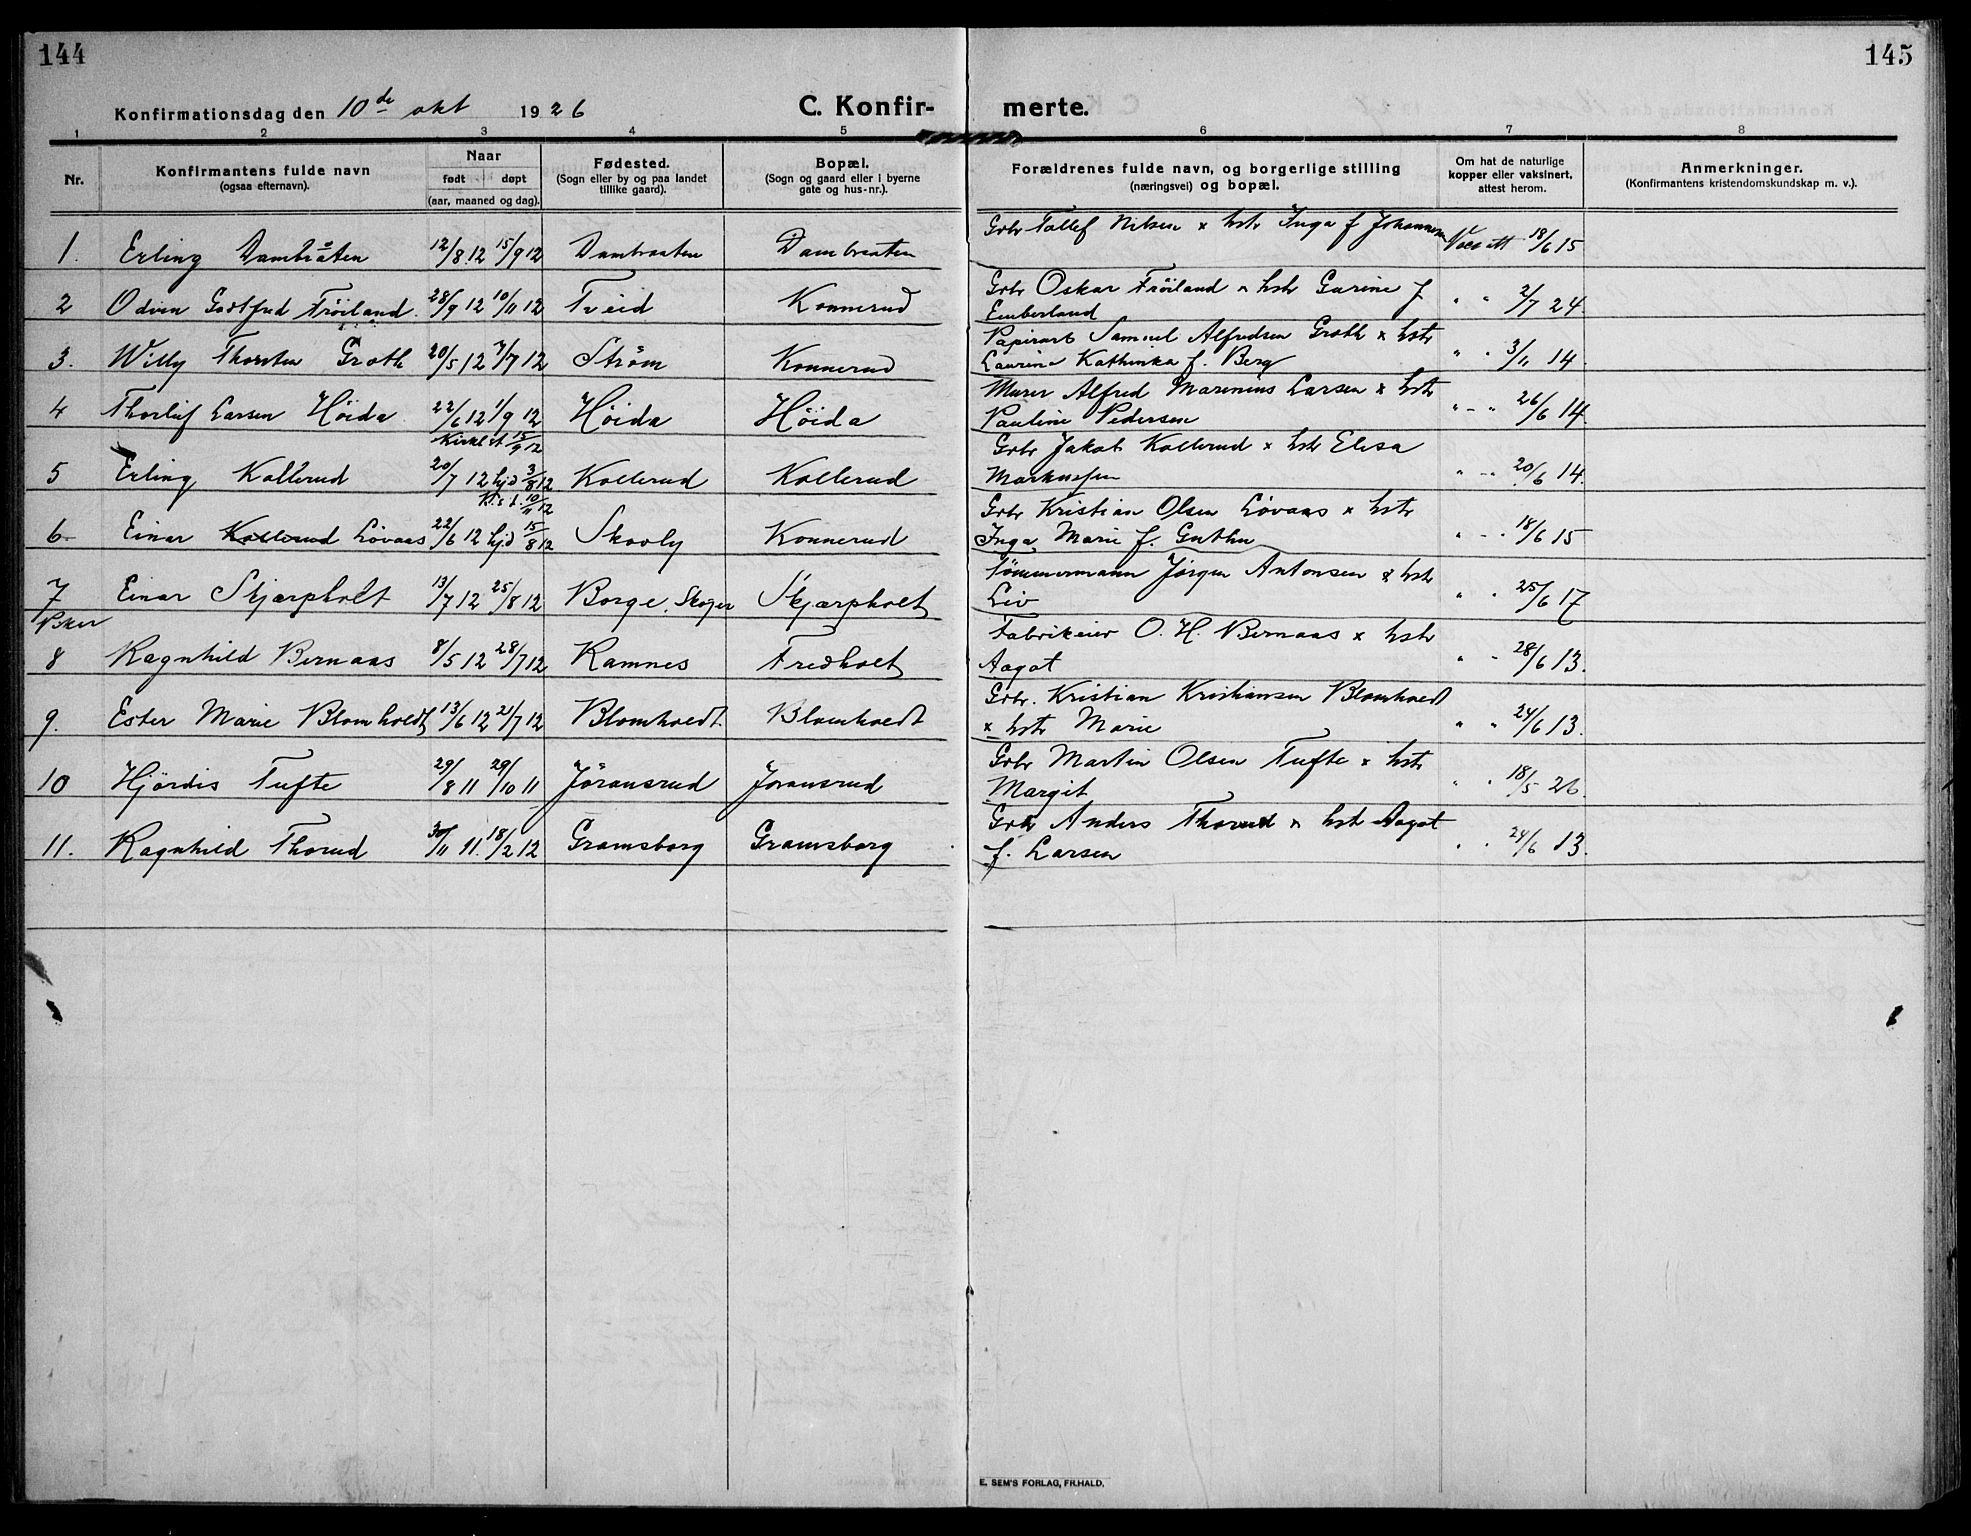 144
145
Konfirmationsdag den 10de okt 1926
C. Konfir-
merte.
1 2 3 4 5 6 7 8
Nr.
Konfirmantens fulde navn
(ogsaa efternavn).
Naar
født døpt
(aar, maaned og dag).
Fødested.
(Sogn eller by og paa landet
tillike gaard).
Bopæl.
(Sogn og gaard eller i byerne
gate og hus-nr.).
Forældrenes fulde navn, og borgerlige stilling
(næringsvei) og bopæl.
Om hat de naturlige
kopper eller vaksinert,
attest herom.
Anmerkninger.
(Konfirmantens kristendomskundskap m. v.).
Gbr Tollef Nilsen x hstr Inga f Johannesen
1. Erling Dambråten 12/8 12 15/9 12 Dambraaten Dambraaten Vacc att 18/6 15
Gbr Oskar Fröiland x hstr Gurine f
2 Odvin Godtfred Fröiland. 28/9 12 10/11 12 Tveid Konnerud " " 2/7 24.
Emberland
Papirarb Samuel Alfredsen Groth x hstr
3. Willy Thorsten Groth 20/5 12 7/7 12 Strøm Konnerud " " 3/11 14
Laurine Kathinka f. Berg
Murer Alfred Marinius Larsen x hstr
4 Thorleif Larsen Höida 22/6 12 1/9 12 Höida Höida " - " 26/6 14.
Pauline Pedersen
Kirkl st 15/9 12
Gbr Jakob Kollerud x hstr Elisa
5 Erling Kollerud 20/7 12 hjd 3/8 12 Kollerud Kollerud " - " 20/6 14.
Markussen
10/11 12
Gbr Kristian Olsen Lövaas x hstr
6 Einar Kollerud Lövaas 22/6 12 hjd 15/8 12 Skovly Konnerud " - " 18/6 15
Inga Marie f. Guthu
Tömmermann Jörgen Antonsen x hstr
7 Einar Skjærpholt 13/7 12 25/8 12 Borge, Skoger Skjærpholt " " 25/6 17
Liv
Piker
Fabrikeier O. H. Bernaas x hstr
8 Ragnhild Bernaas 8/5 12 28/7 12 Ramnes Fredholt " " 28/6 13.
Aagot
Gbr. Kristian Kristiansen Blomholdt
9. Ester Marie Blomholdt 13/6 12 21/7 12 Blomholdt. Blomholdt " " 24/6 13.
x hstr Marie
Gbr Martin Olsen Tufte x hstr
10 Hjördis Tufte 29/8 11 29/10 11 Jöransrud Joransrud " " 18/5 26.
Margit
Gbr Anders Thorud x hstr Aagot
11. Ragnhild Thorud 30/11 11. 18/2 12 Gramsborg Gramsborg " " 24/6 13.
f. Larsen
E. SEM'S FORLAG, FR.HALD.